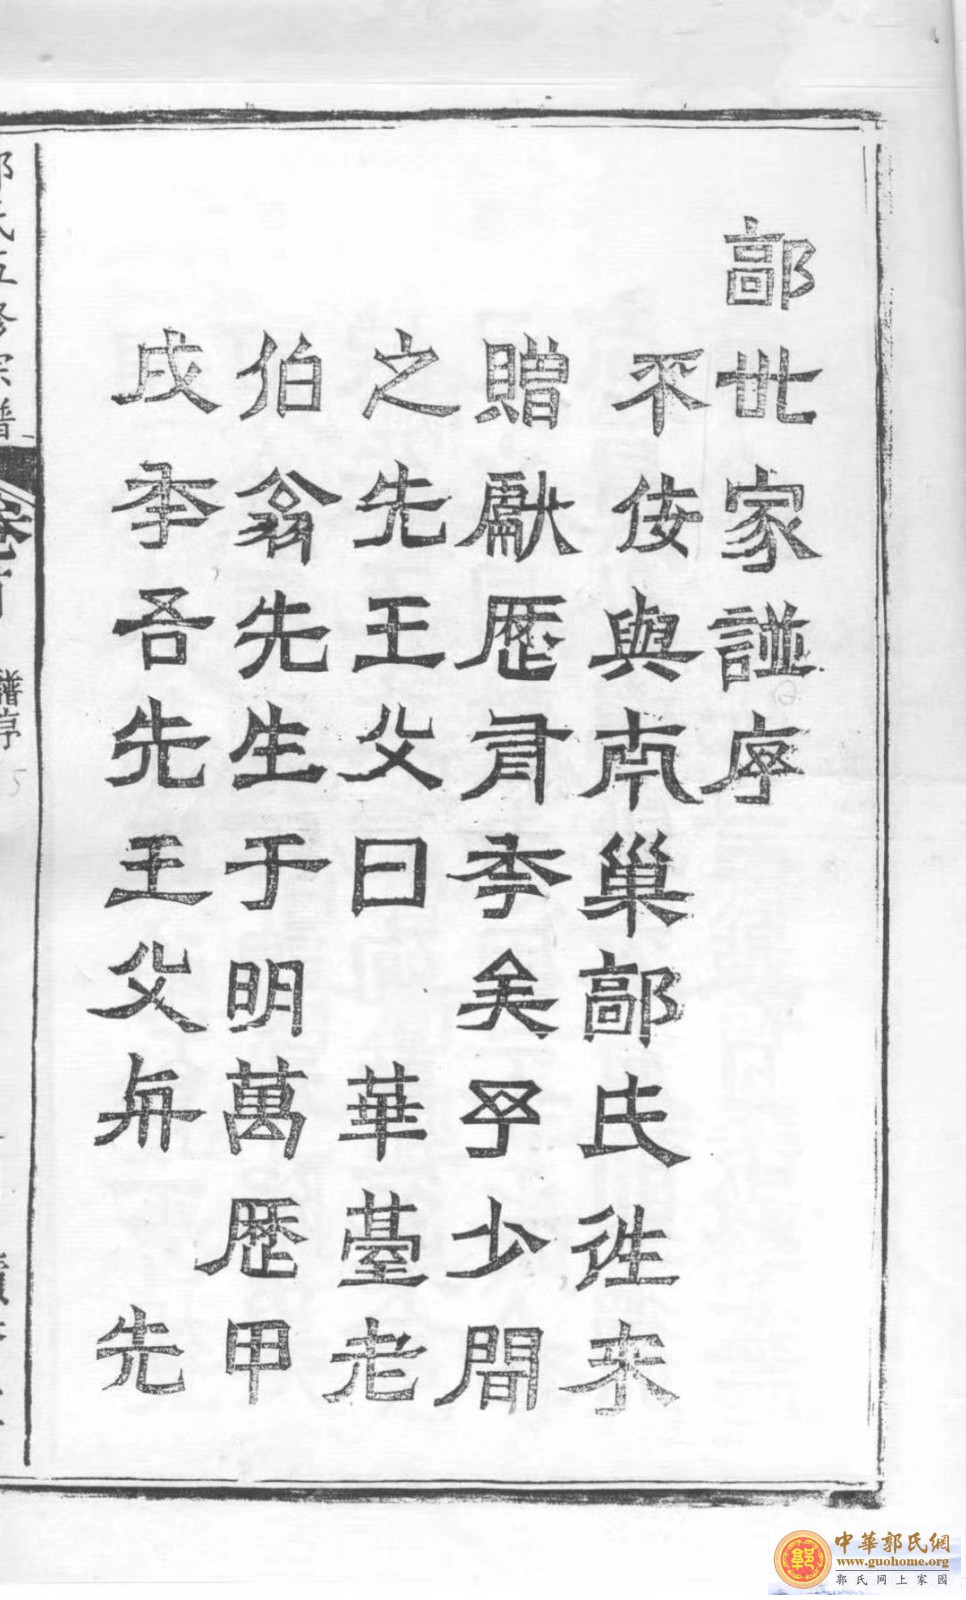 郭世家諩序
不佞與南巢郭氏往来
贈獻歷有年矣予少間
之先王父曰 華臺老
伯翁先生于明萬歷甲
戌年吾先王父 先
郭氏五修宗譜 卷首 譜序
中華郭氏網
www.guohome.org
郭氏网上家园